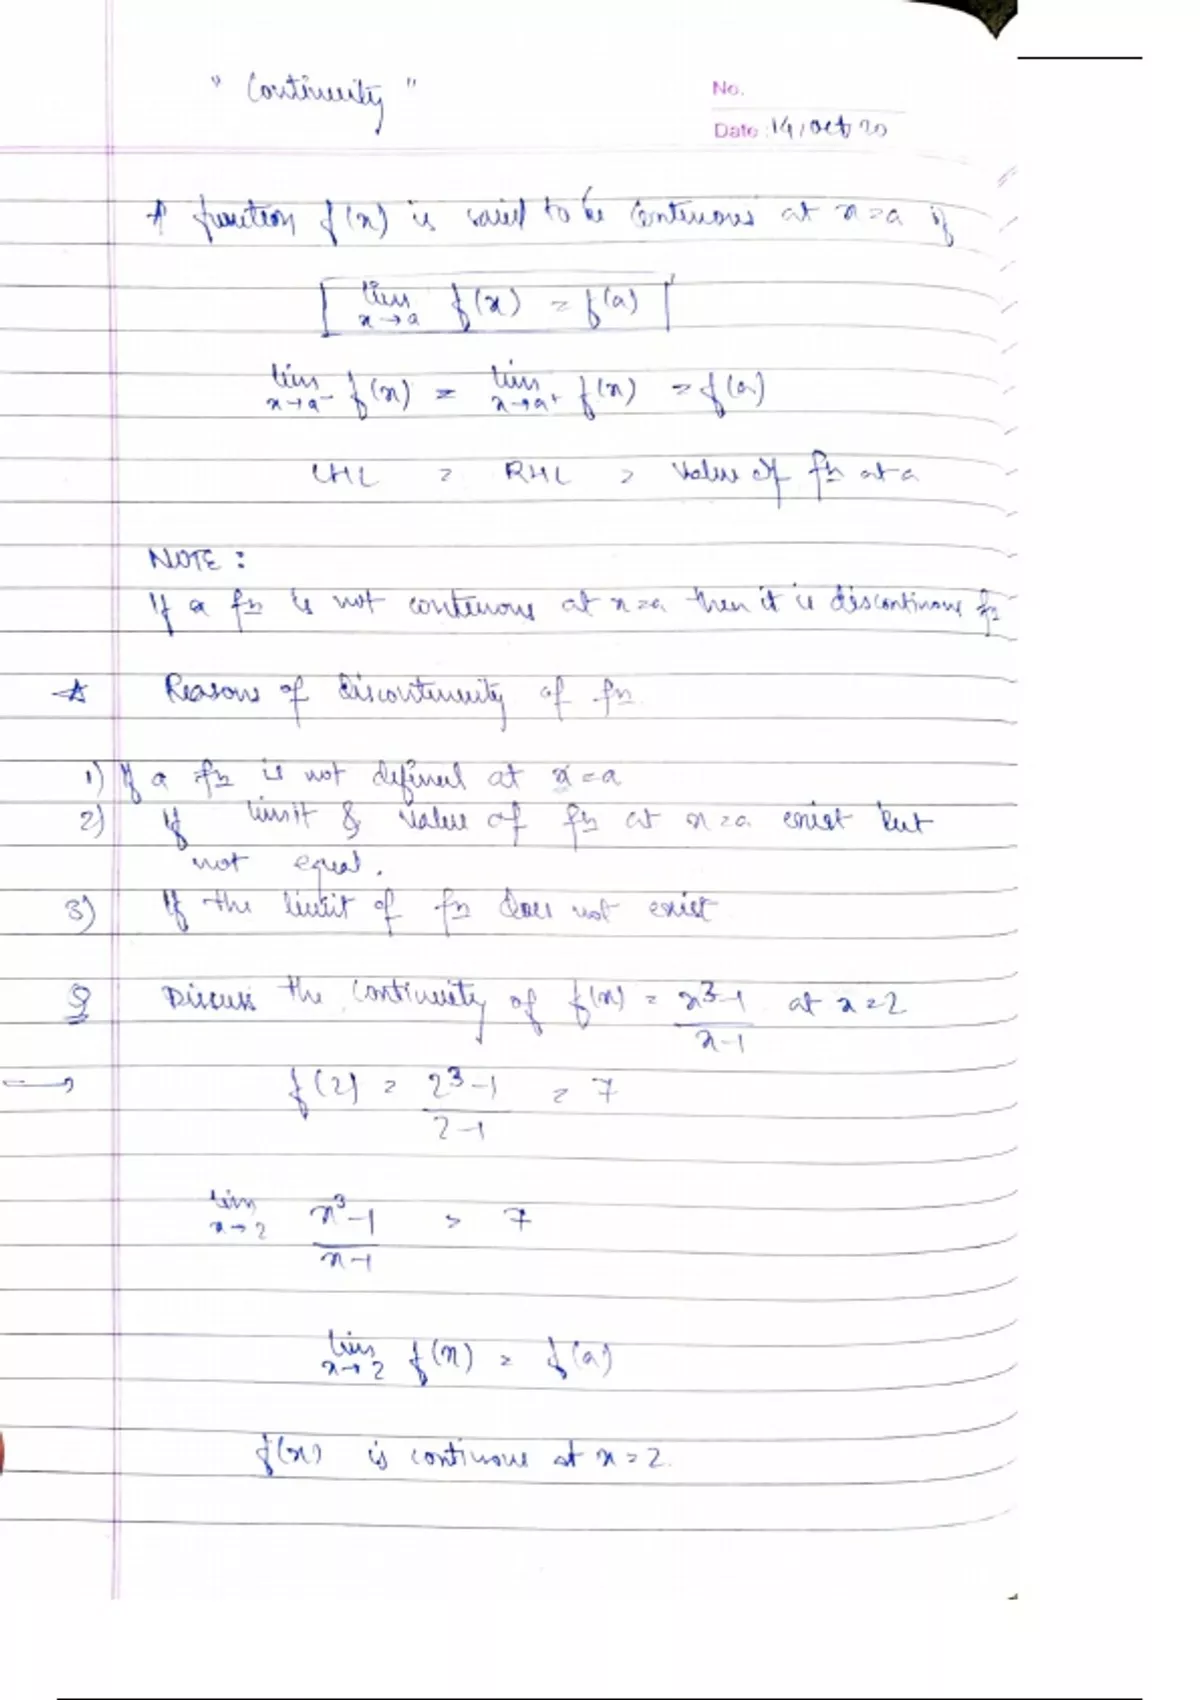 " Continuity "
No.
Date : 14, Oct 20
A function f(x) is said to be continuous at x = a if
lim x→a f(x) = f(a)
lim x→a⁻ f(x) = lim x→a⁺ f(x) = f(a)
LHL = RHL = Value of fn at a
NOTE :
If a fn is not continuous at x=a then it is discontinous fn
☆ Reasons of discontinuity of fn
1) If a fn is not defined at x = a
2) If limit & value of fn at x = a exist but
not equal.
3) If the limit of fn does not exist
Q Discuss the continuity of f(x) = x³-1 / x-1 at x = 2
→ f(2) = 2³-1 / 2-1 = 7
lim x→2 x³-1 / x-1 = 7
lim x→2 f(x) = f(a)
f(x) is continous at x = 2.